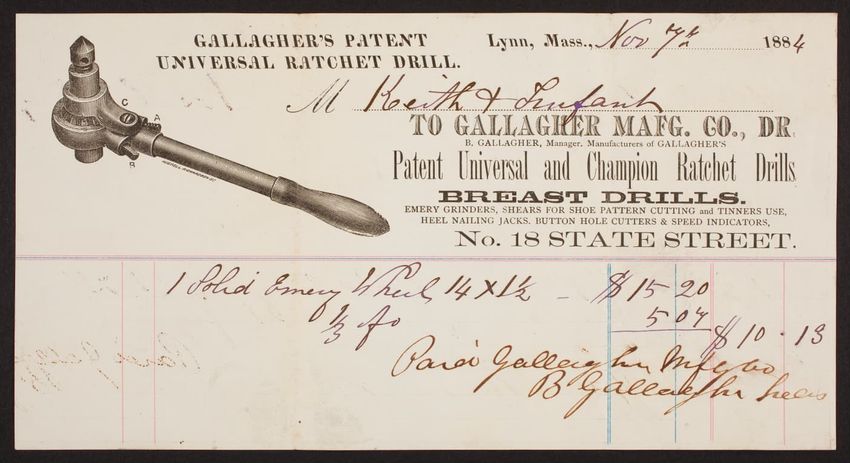 GALLAGHER'S PATENT
UNIVERSAL RATCHET DRILL.
Lynn, Mass., Nov 7th 1884
M Keith & Trufant
TO GALLAGHER MAFG. CO., DR.
B. GALLAGHER, Manager. Manufacturers of GALLAGHER'S
Patent Universal and Champion Ratchet Drills,
BREAST DRILLS.
EMERY GRINDERS, SHEARS FOR SHOE PATTERN CUTTING and TINNERS USE,
HEEL NAILING JACKS. BUTTON HOLE CUTTERS & SPEED INDICATORS,
No. 18 STATE STREET.
C
A
B
1 Solid Emery Wheel 14 X 1½ - $15 20
⅓ fo 5 07 $10.13
Paid Gallagher Mfg Co
B Gallagher Treas